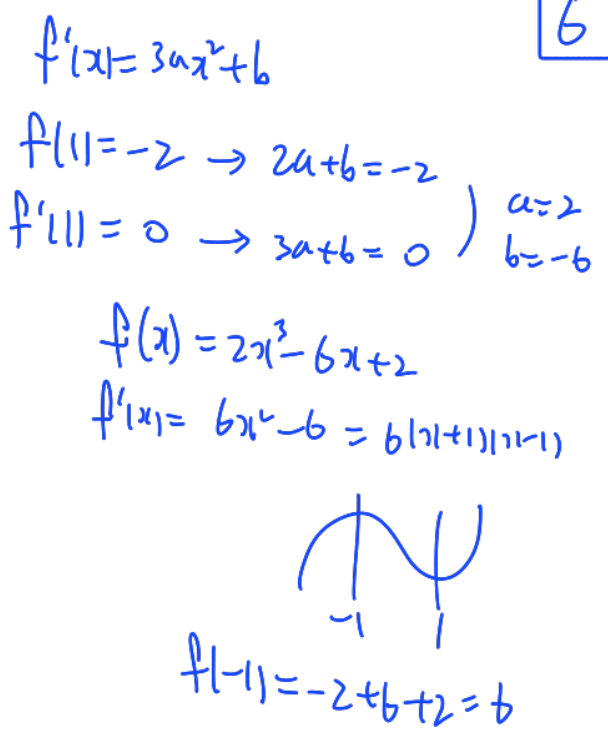 6
f'(x)=3ax²+b
f(1)=-2 → 2a+b=-2
f'(1)=0 → 3a+b=0 ) a=2 b=-6
f(x)=2x³-6x+2
f'(x)=6x²-6=6(x+1)(x-1)
-1 1
f(-1)=-2+6+2=6